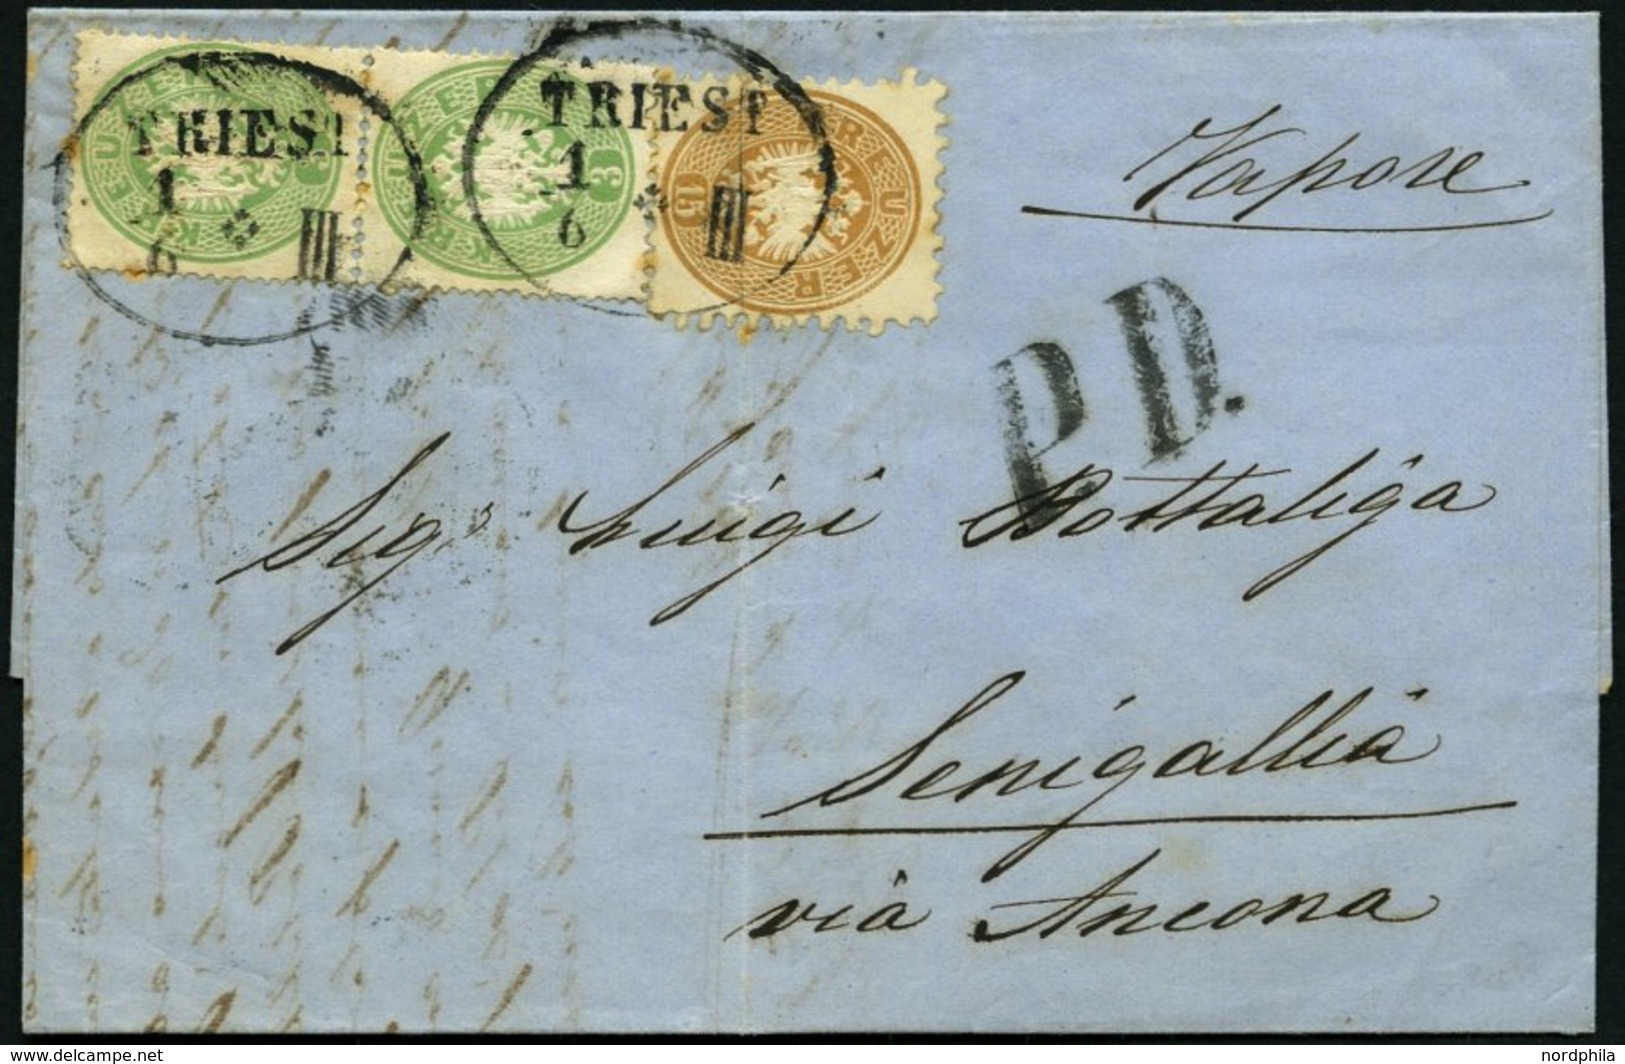 3 KREUZER
3 KREUZER
15 KREUZER
TRIEST
1
6
III
TRIEST
1
6
III
Vapore
P.D.
Sigr Luigi Bottaliga
Senigallia
via Ancona
nordphila